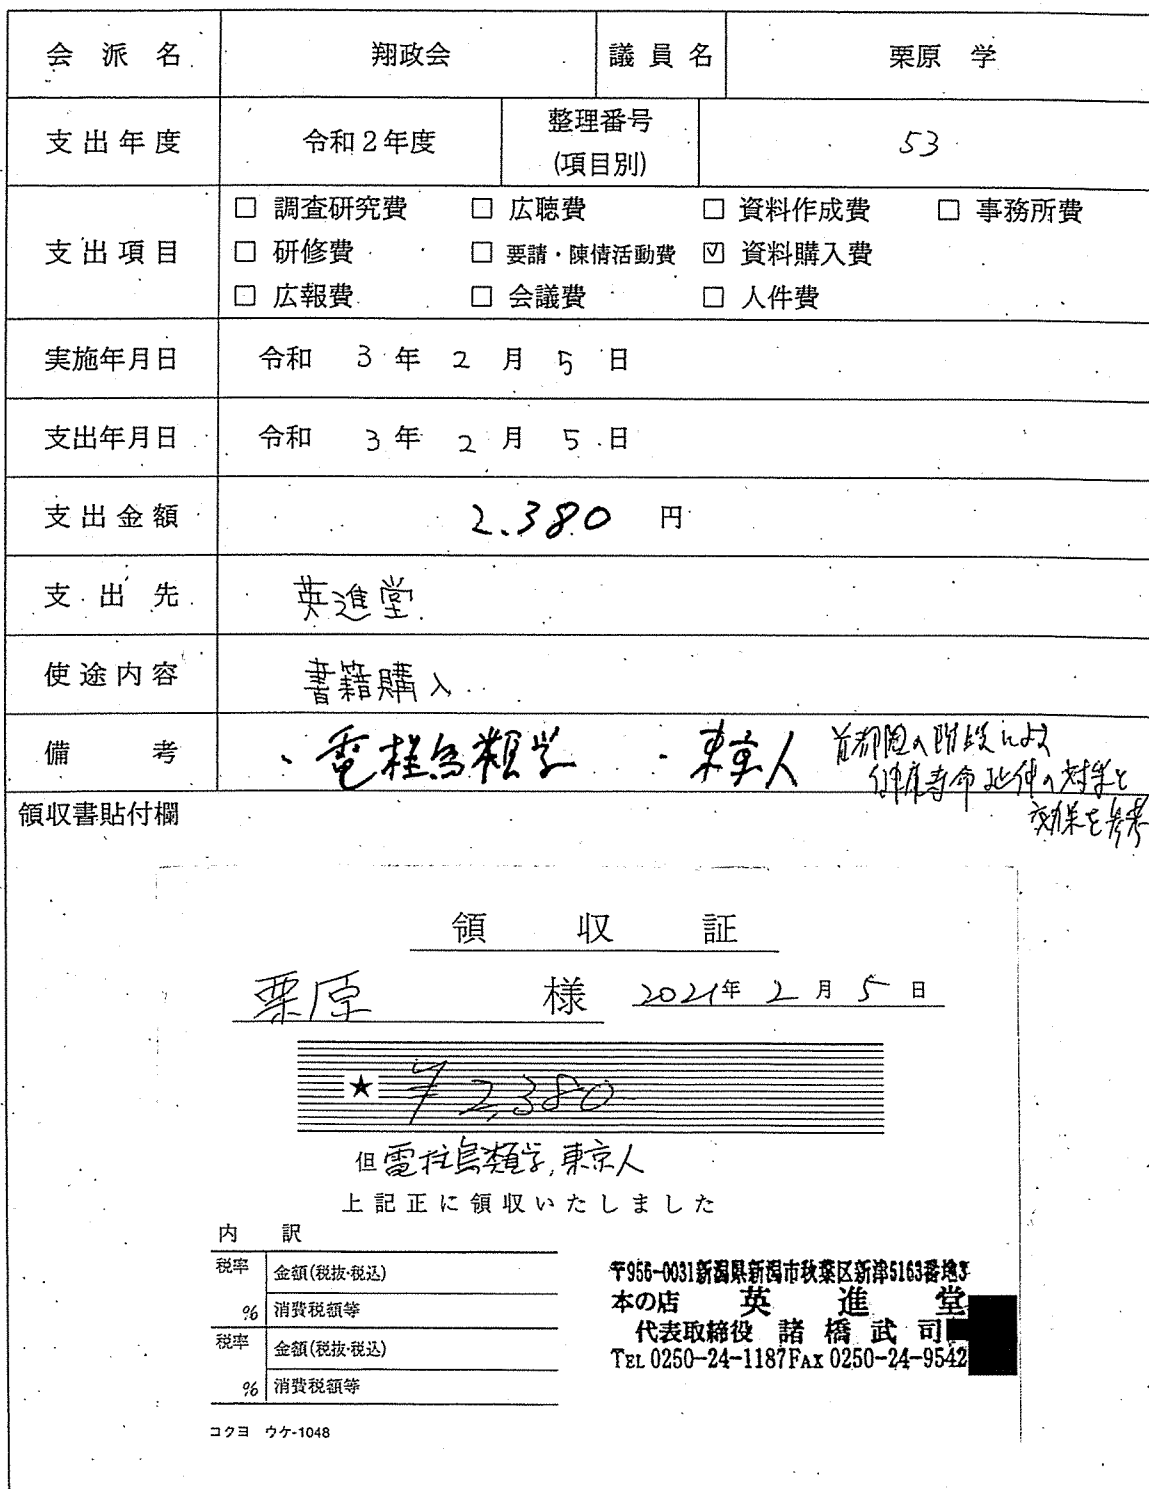 会派名 翔政会 議員名 栗原 学
支出年度 令和2年度 整理番号(項目別) 53
支出項目
□ 調査研究費 □ 広聴費 □ 資料作成費 □ 事務所費
□ 研修費 □ 要請・陳情活動費 ☑ 資料購入費
□ 広報費 □ 会議費 □ 人件費
実施年月日 令和 3年 2月 5日
支出年月日 令和 3年 2月 5日
支出金額 2.380 円
支出先 英進堂
使途内容 書籍購入
備考 ・電柱鳥類学 ・東京人 首都圏の階段による
健康寿命延伸の対策と
効果を参考
領収書貼付欄
領収証
栗原 様 2021年 2月 5日
★ ¥2,380
但 電柱鳥類学,東京人
上記正に領収いたしました
内訳
税率 金額(税抜・税込)
% 消費税額等
税率 金額(税抜・税込)
% 消費税額等
〒956-0031新潟県新潟市秋葉区新津5163番地3
本の店 英進堂
代表取締役 諸橋武司
TEL 0250-24-1187 FAX 0250-24-9542
コクヨ ウケ-1048